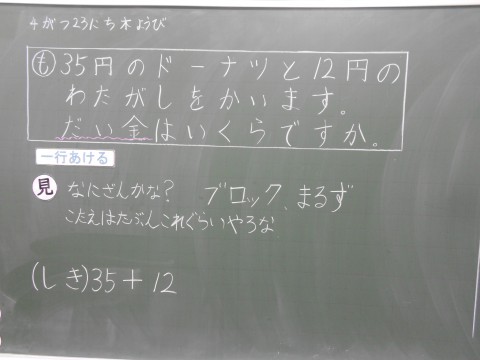 4がつ23にち木ようび
も 35円のドーナツと12円の
わたがしをかいます。
だい金はいくらですか。
一行あける
見 なにざんかな? ブロック、まるず
こたえはたぶんこれぐらいやろな
(しき)35+12